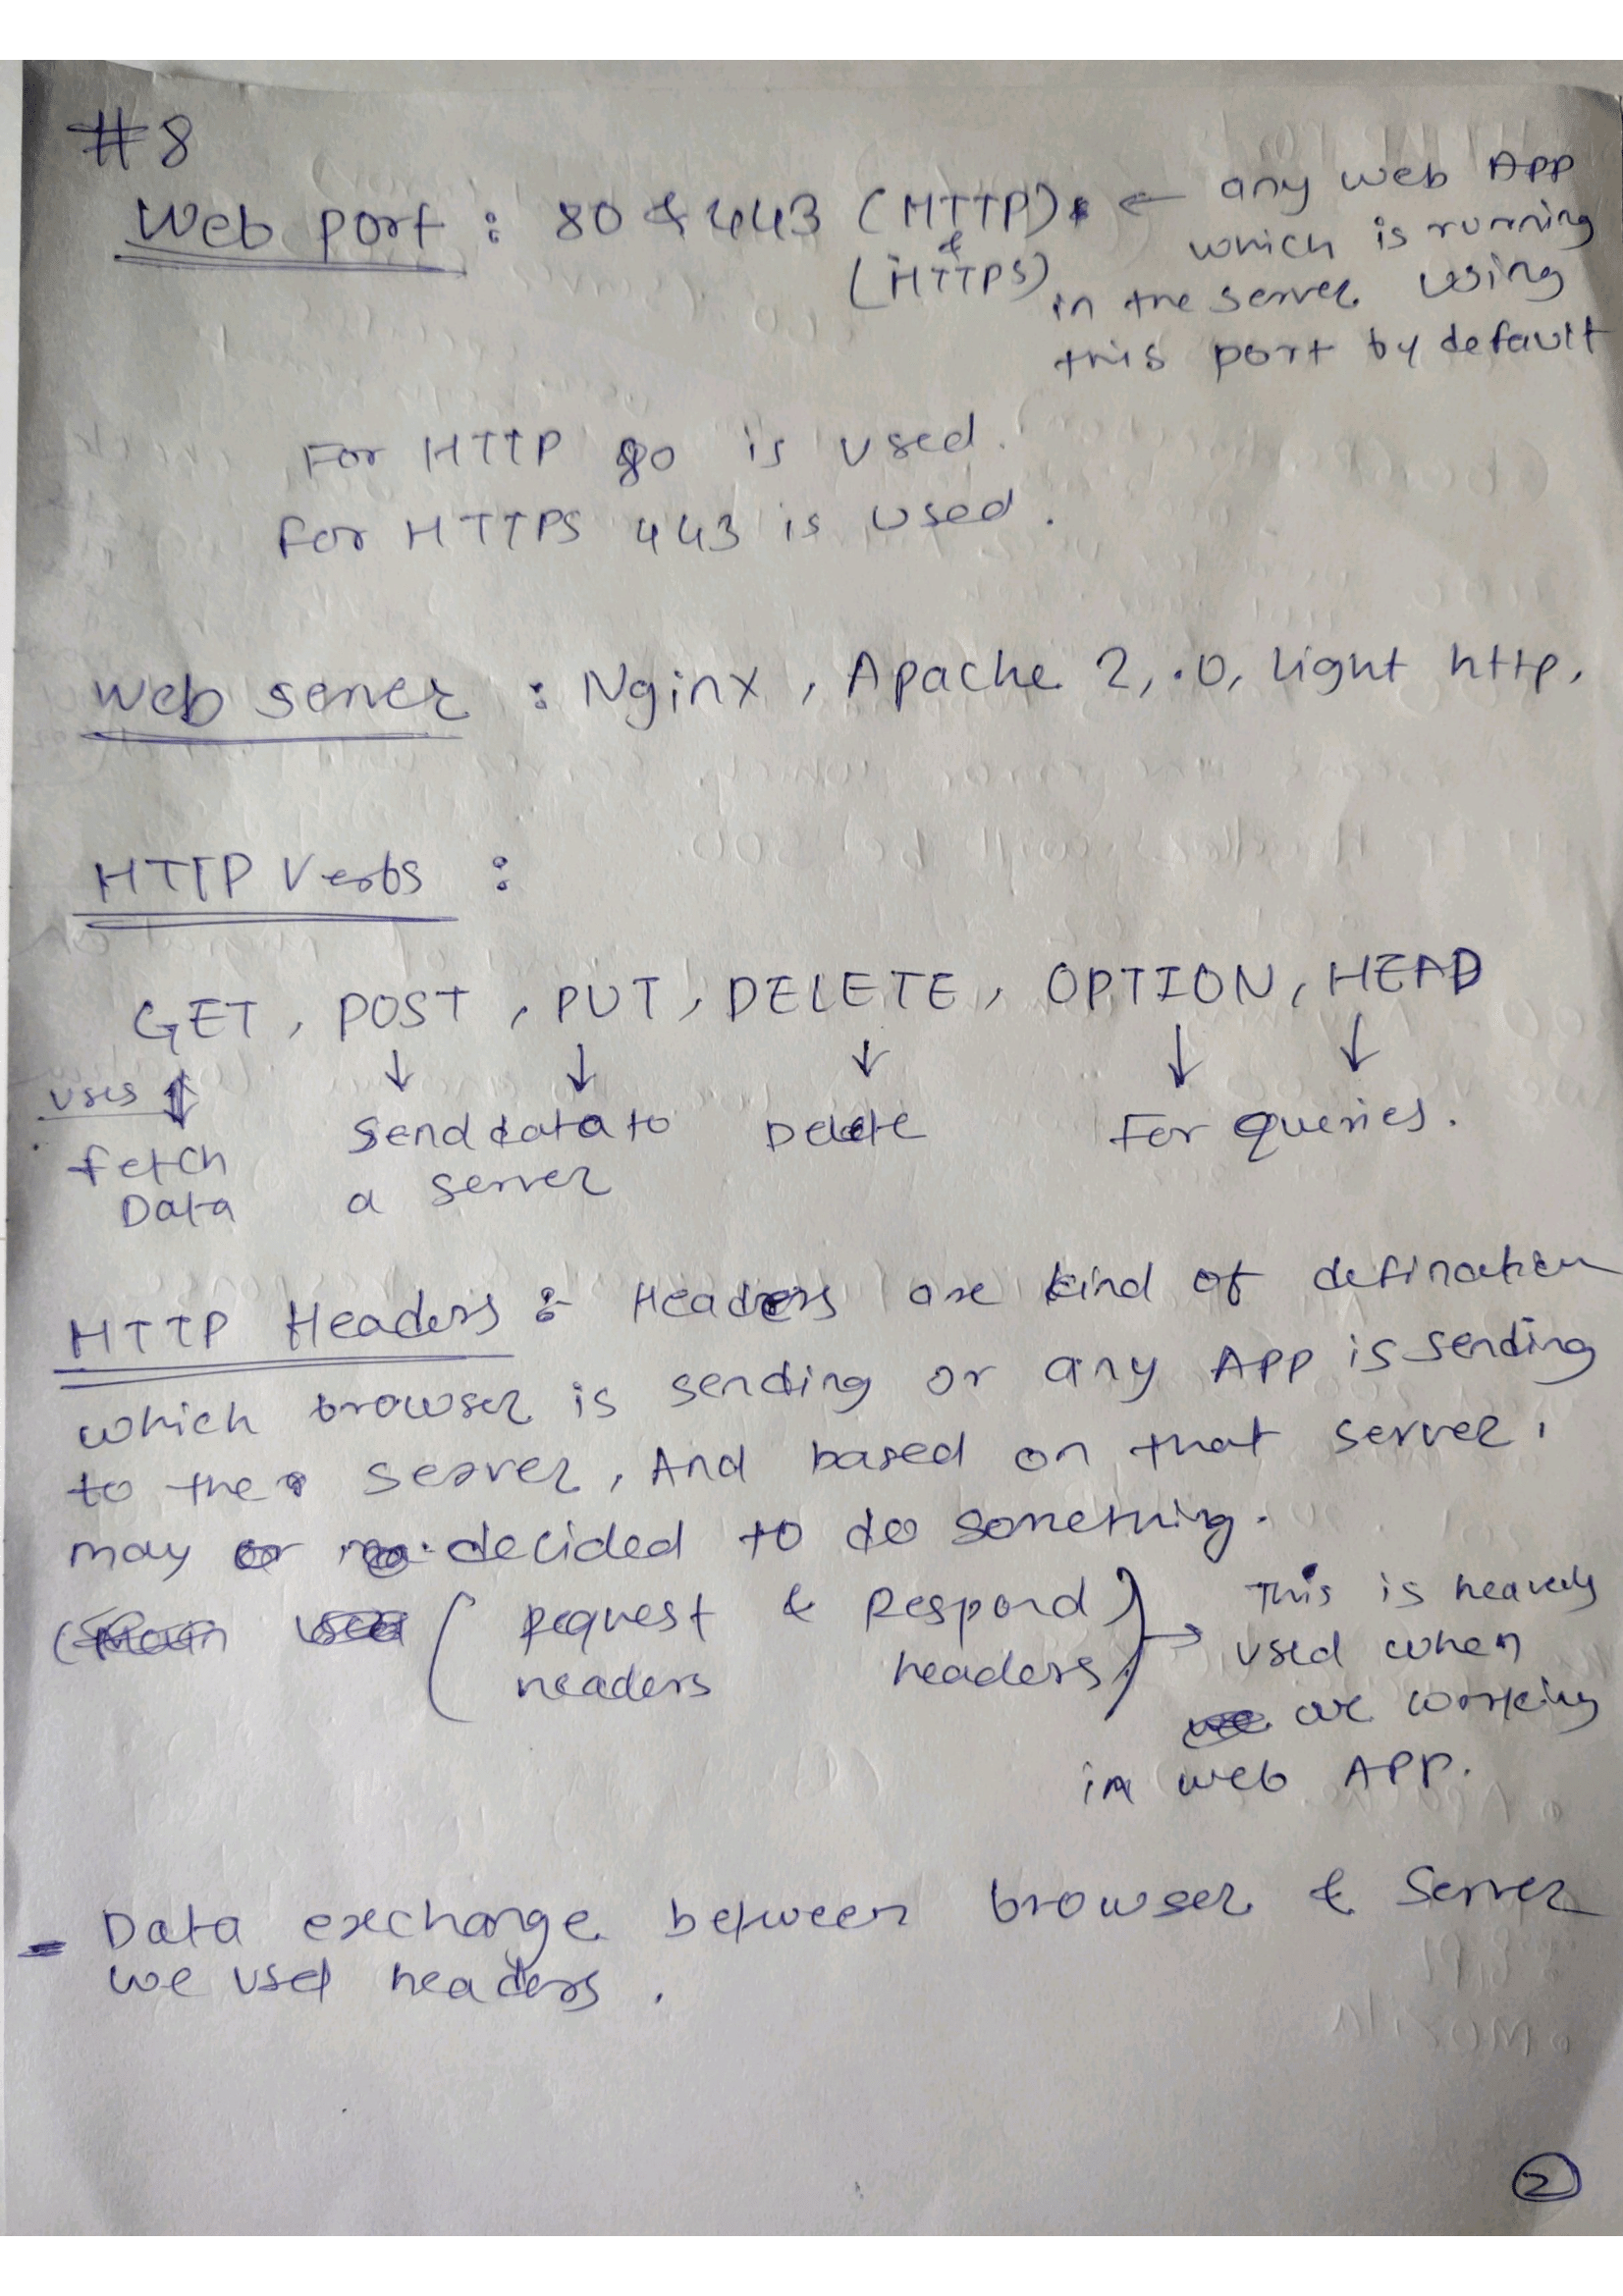 #8
Web port : 80 & 443 (HTTP) ← any web App
&
(HTTPS)
which is running
in the server using
this port by default
For HTTP 80 is used.
For HTTPS 443 is used.
Web server : Nginx, Apache 2,.0, Light http,
HTTP Verbs :
GET, POST, PUT, DELETE, OPTION, HEAD
uses ↓ ↓ ↓ ↓ ↓ ↓
fetch Send data to Delete For queries.
Data a server
HTTP Headers :- Headers are kind of defination
which browser is sending or any App is sending
to the server, And based on that server,
may decided to do something.
( Request & Respond ) → This is heavely
headers headers used when
are working
in web APP.
- Data exchange between browser & Server
we used headers.
2